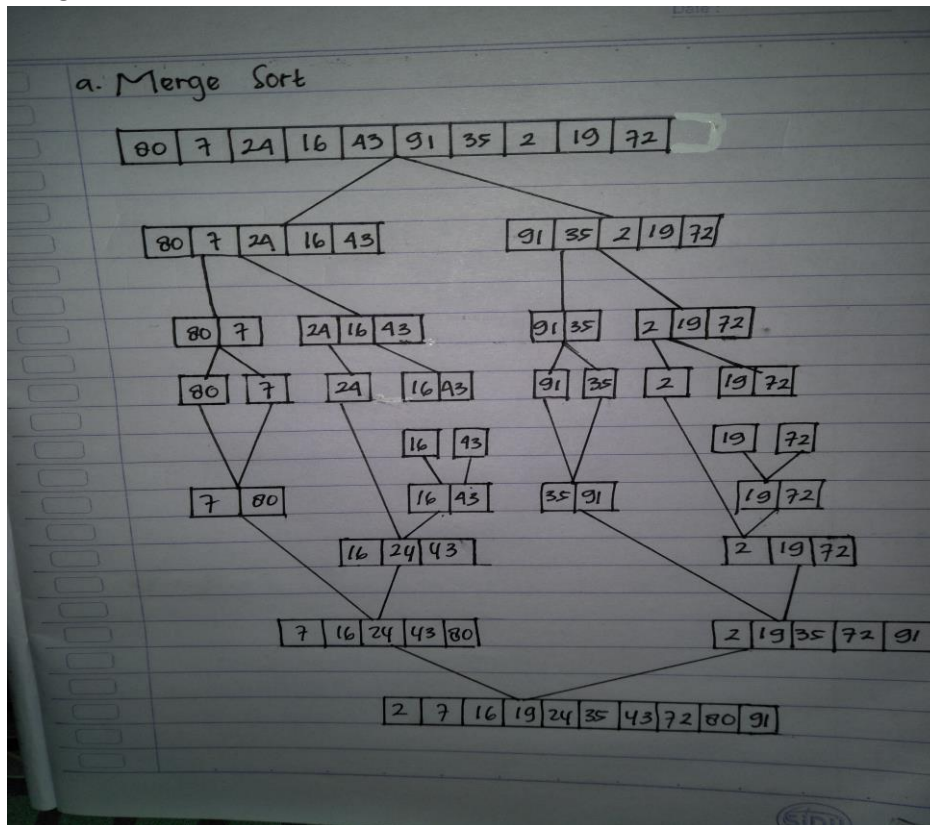 Date :
a. Merge Sort
80 7 24 16 43 91 35 2 19 72
80 7 24 16 43 91 35 2 19 72
80 7 24 16 43 91 35 2 19 72
80 7 24 16 43 91 35 2 19 72
16 43 19 72
7 80 16 43 35 91 19 72
16 24 43 2 19 72
7 16 24 43 80 2 19 35 72 91
2 7 16 19 24 35 43 72 80 91
SIDU